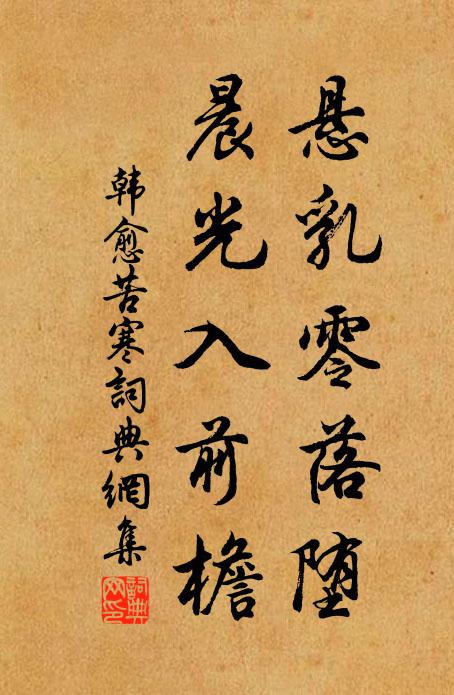 悬乳零落堕
晨光入前檐
韩愈苦寒詞典網集
詞典
网印